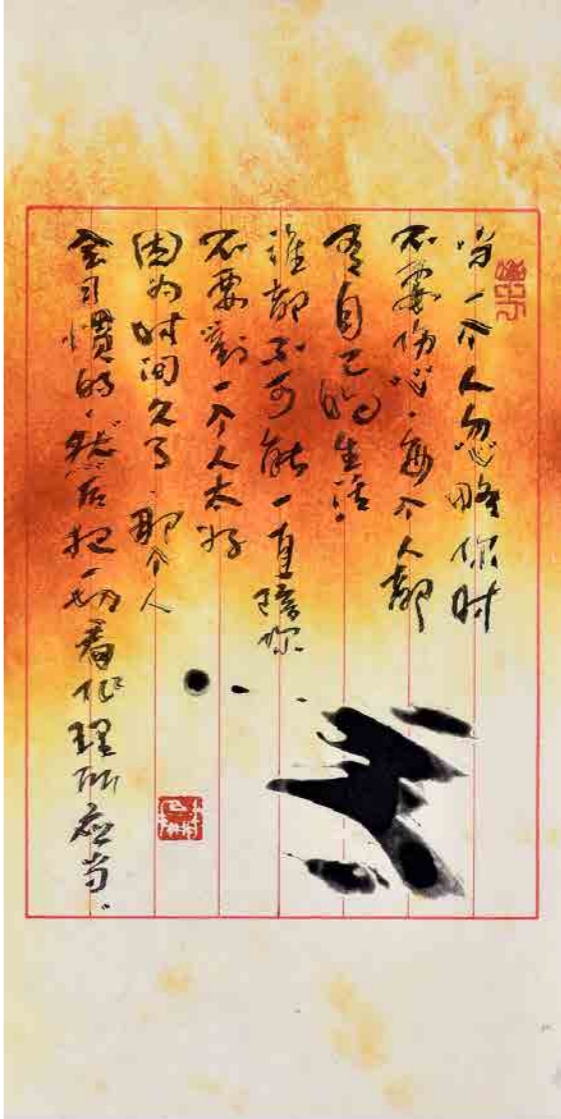 当一个人忽略你时
不要伤心，每个人都
有自己的生活
谁都不可能一直陪你
不要對一个人太好
因为时间久了，那个人
会习惯的，然后把一切看作理所应当。